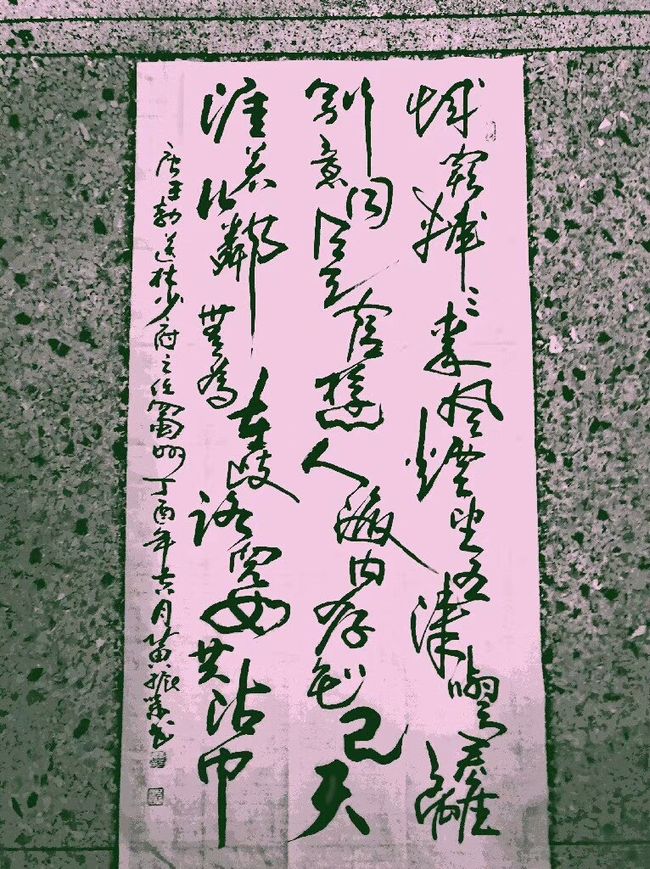 城闕輔三秦风煙望五津與君離
别意同是宦遊人海内存知己天
涯若比鄰無為在歧路兒女共沾巾
唐王勃送杜少府之任蜀州丁酉年六月苗振书